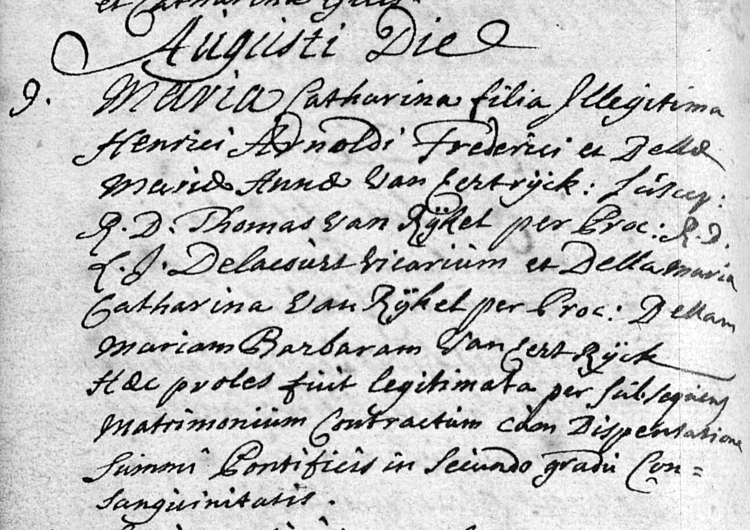 et Catharina
Augusti Die
9. Maria Catharina filia Illegitima
Henrici Arnoldi Frederici et Dellæ
Mariæ Annæ Van Eertrÿck: Suscep:
R. D. Thomas Van Rÿkel per Proc: R. D.
L. J. Delacourt vicarium et Della Maria
Catharina Van Rÿkel per Proc: Dellam
Mariam Barbaram Van Eert Rÿck
Hæc proles fuit legitimata per subsequens
Matrimonium Contractum cum Dispensatione
Summi Pontificis in secundo gradu Con=
sanguinitatis.